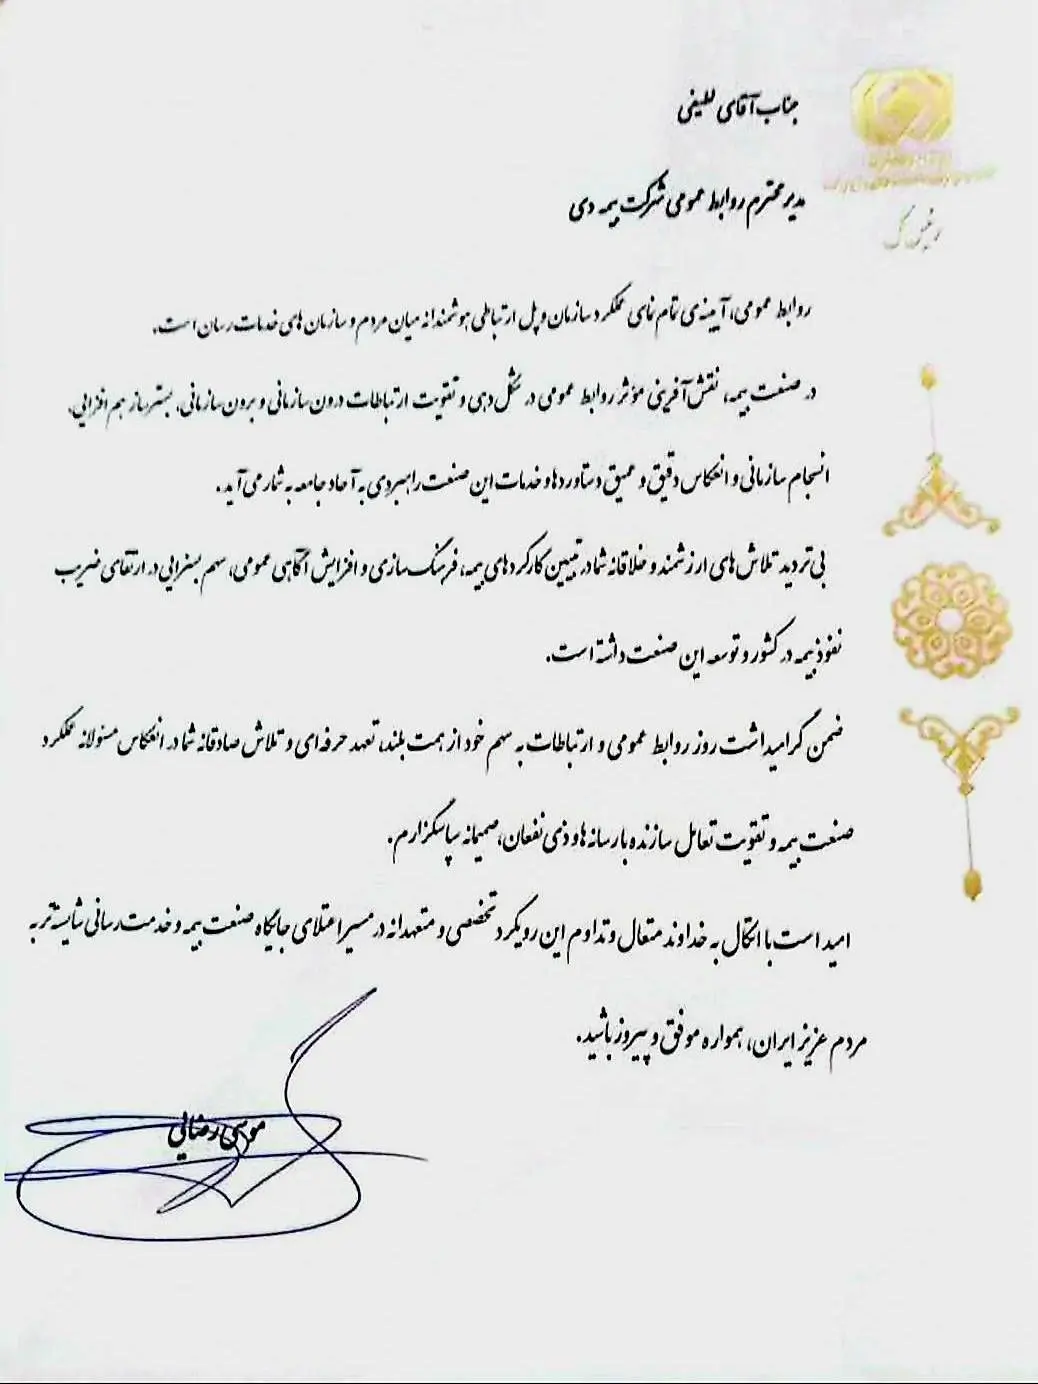 جناب آقای لطیفی
مدیر محترم روابط عمومی شرکت بیمه دی
رئیس کل
روابط عمومی، آیینه‌ی تمام نمای عملکرد سازمان و پل ارتباطی هوشمندانه میان مردم و سازمان های خدمات رسان است.
در صنعت بیمه، نقش آفرینی مؤثر روابط عمومی در شکل دهی و تقویت ارتباطات درون سازمانی و برون سازمانی، بسترساز هم افزایی،
انسجام سازمانی و انعکاس دقیق و عمیق دستاوردها و خدمات این صنعت راهبردی به آحاد جامعه به شمار می آید.
بی تردید تلاش های ارزشمند و خلاقانه شما در تبیین کارکردهای بیمه، فرهنگ سازی و افزایش آگاهی عمومی، سهم بسزایی در ارتقای ضریب
نفوذ بیمه در کشور و توسعه این صنعت داشته است.
ضمن گرامیداشت روز روابط عمومی و ارتباطات به سهم خود از همت بلند، تعهد حرفه ای و تلاش صادقانه شما در انعکاس مسئولانه عملکرد
صنعت بیمه و تقویت تعامل سازنده با رسانه ها و ذی نفعان، صمیمانه سپاسگزارم.
امید است با اتکال به خداوند متعال و تداوم این رویکرد تخصصی و متعهدانه در مسیر اعتلای جایگاه صنعت بیمه و خدمت رسانی شایسته تر به
مردم عزیز ایران، همواره موفق و پیروز باشید.
موسی رضائی